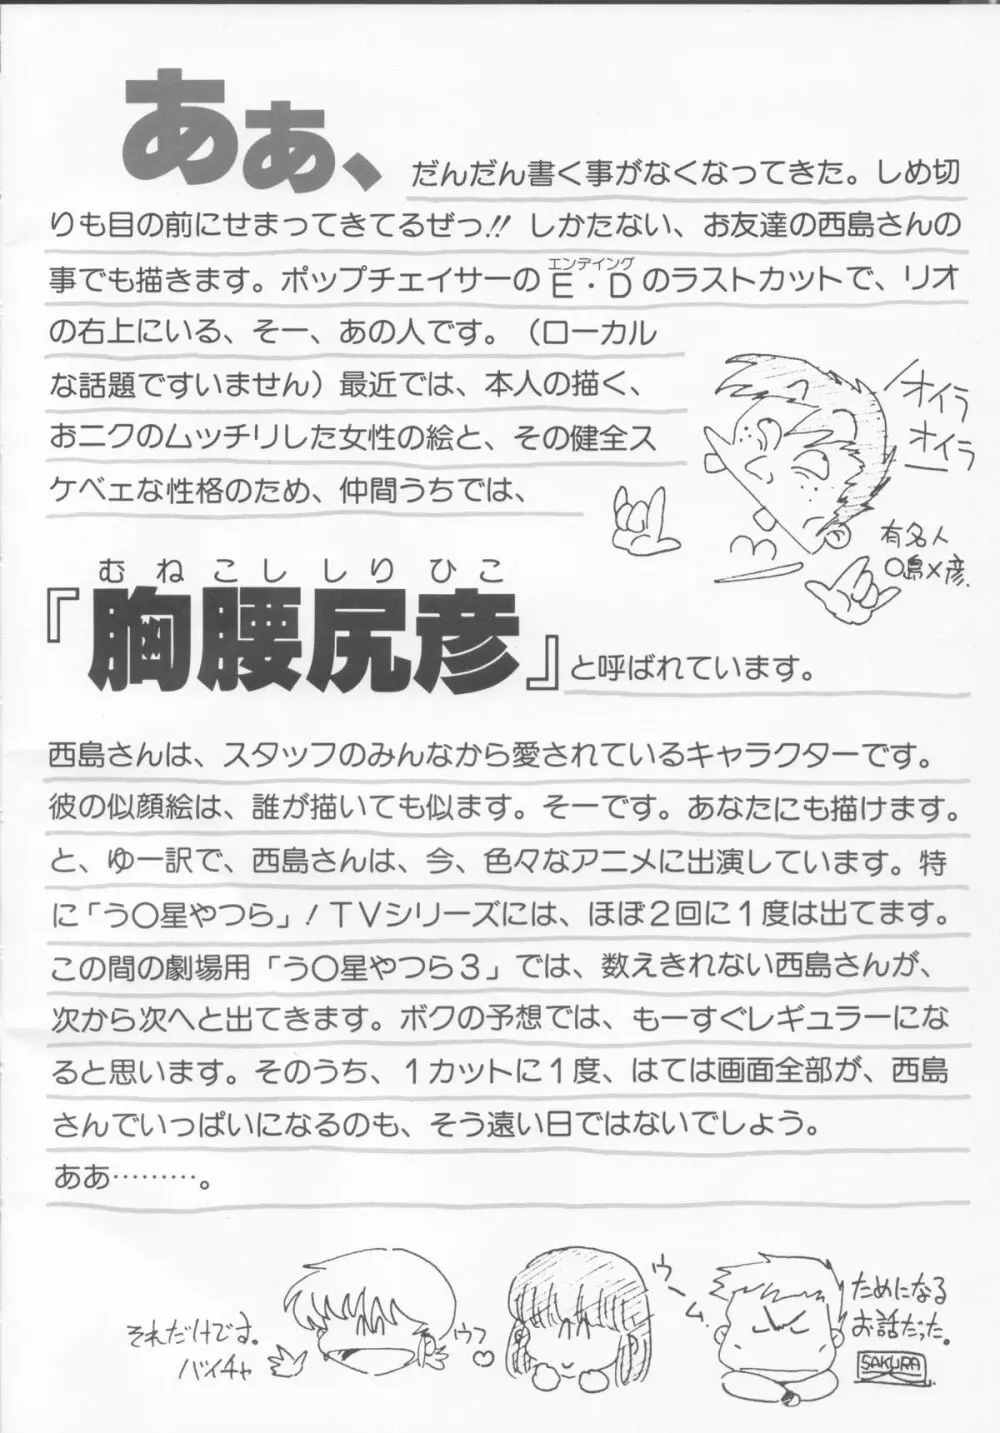 あぁ、だんだん書く事がなくなってきた。しめ切
りも目の前にせまってきてるぜっ!! しかたない、お友達の西島さんの
事でも描きます。ポップチェイサーのE・Dのラストカットで、リオ
エンディング
の右上にいる、そー、あの人です。(ローカル
な話題ですいません)最近では、本人の描く、
おニクのムッチリした女性の絵と、その健全ス
ケベェな性格のため、仲間うちでは、
オイラ
オイラ
有名人
○島×彦.
むねこししりひこ
『胸腰尻彦』と呼ばれています。
西島さんは、スタッフのみんなから愛されているキャラクターです。
彼の似顔絵は、誰が描いても似ます。そーです。あなたにも描けます。
と、ゆー訳で、西島さんは、今、色々なアニメに出演しています。特
に「う○星やつら」!TVシリーズには、ほぼ2回に1度は出てます。
この間の劇場用「う○星やつら3」では、数えきれない西島さんが、
次から次へと出てきます。ボクの予想では、もーすぐレギュラーにな
ると思います。そのうち、1カットに1度、はては画面全部が、西島
さんでいっぱいになるのも、そう遠い日ではないでしょう。
ああ………。
それだけです。
バイチャ
ウフ
ウーム.
ためになる
お話だった。
SAKURA